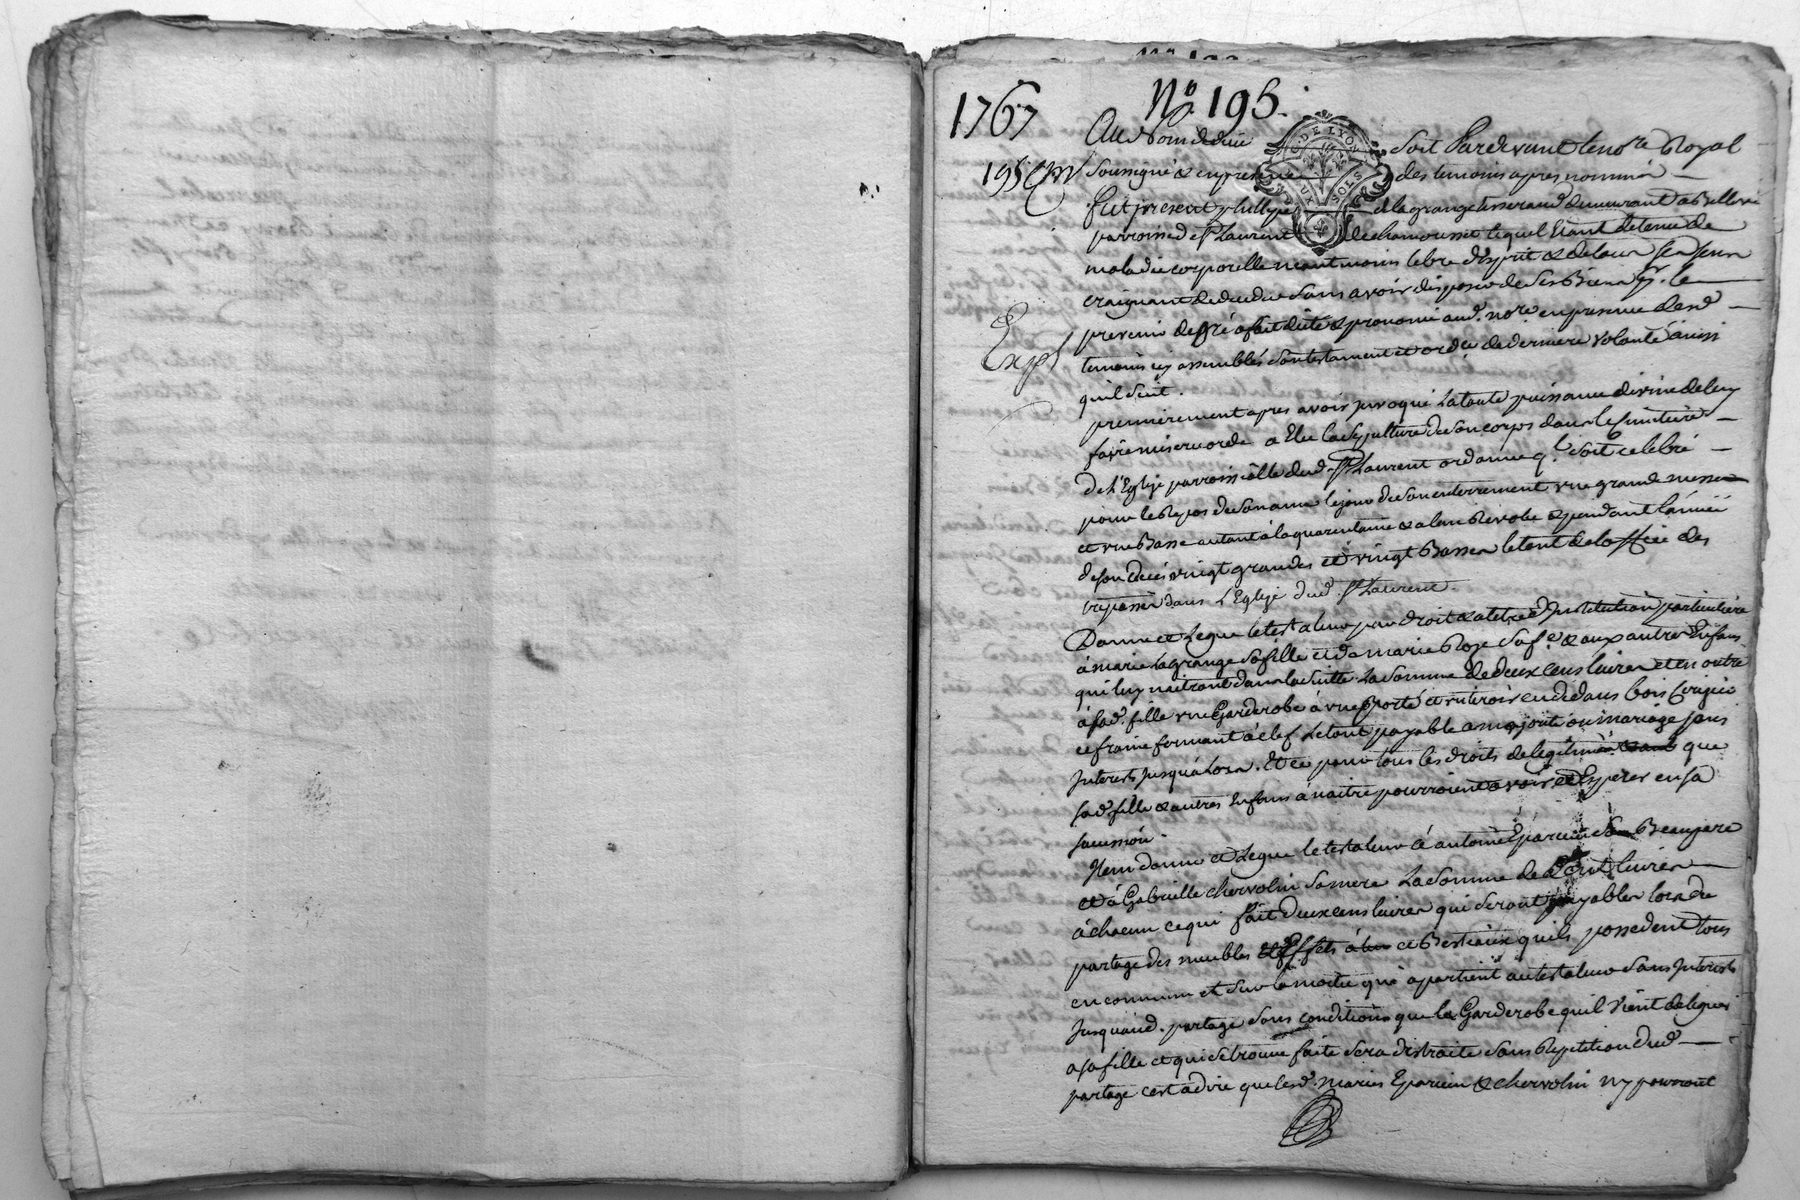 1767
N.º 195.
195
Au Nom de dieu soit Pardevant le no.re Royal
soussigné & en presence des temoins apres nommés
fut present phillipe delagrange tisserand demeurant a
parroisse de St Laurent de chamousset lequel Etant detenu de
maladie corporelle neantmoins libre d'Esprit & de tous ses sens
craignant de deceder sans avoir disposé de ses Biens pr. le
prevenir de gré a fait dicté & prononcé aud. no.re en presence desd.
temoins icy assemblés son testament et ordce de derniere volonté ainsi
Expé
quil suit.
premierement apres avoir invoqué La toute puissance divine de luy
faire misericorde a Elu la sepulture de son corps dans le cimitiere
de l'Eglise parroissialle dud. St Laurent ordonne q.l soit celebré
pour le Repos de son ame le jour de son enterrement une grande messe
et une Basse autant à la quarantaine & a l'an Revolu & pendant l'année
de son deces vingt grandes et vingt Basses le tout de l'office des
trepassés dans L'Eglise dud. St Laurent.
Donne et Legue le testateur par droit & a titre d'Institution particuliere
à marie Lagrange sa fille et de marie Roze sa f.e & aux autres Enfans
qui luy naitront dans la suitte La somme de deux cens livres et en outre
à sad. fille une Garderobe à une Porte et un tiroir en dedans bois cerizier
et fraine fermant à clef Le tout payable a majorité ou mariage sans
Interets Jusqu'alors. Et ce pour tous les droits de legitime que
sad. fille & autres Enfans à naitre pourroient avoir et Esperer en sa
sucession.
Item donne et Legue le testateur à antoine Eparcieu son Beaupere
et à Gabrielle chervolin sa mere La somme de cent livres
à chacun ce qui fait deux cens livres qui seront payables lors du
partage des meubles Effets et Bestiaux quils possedent tous
en commun et sur la moitié qui apartient au testateur sans Interets
Jusquaud. partage sous conditions que la Garderobe quil vient de leguer
a sa fille et qui se trouve faite sera distraite sans Repetition dud.
partage c'est a dire que lesd. maries Eparcieu & chervolin n'y pourront